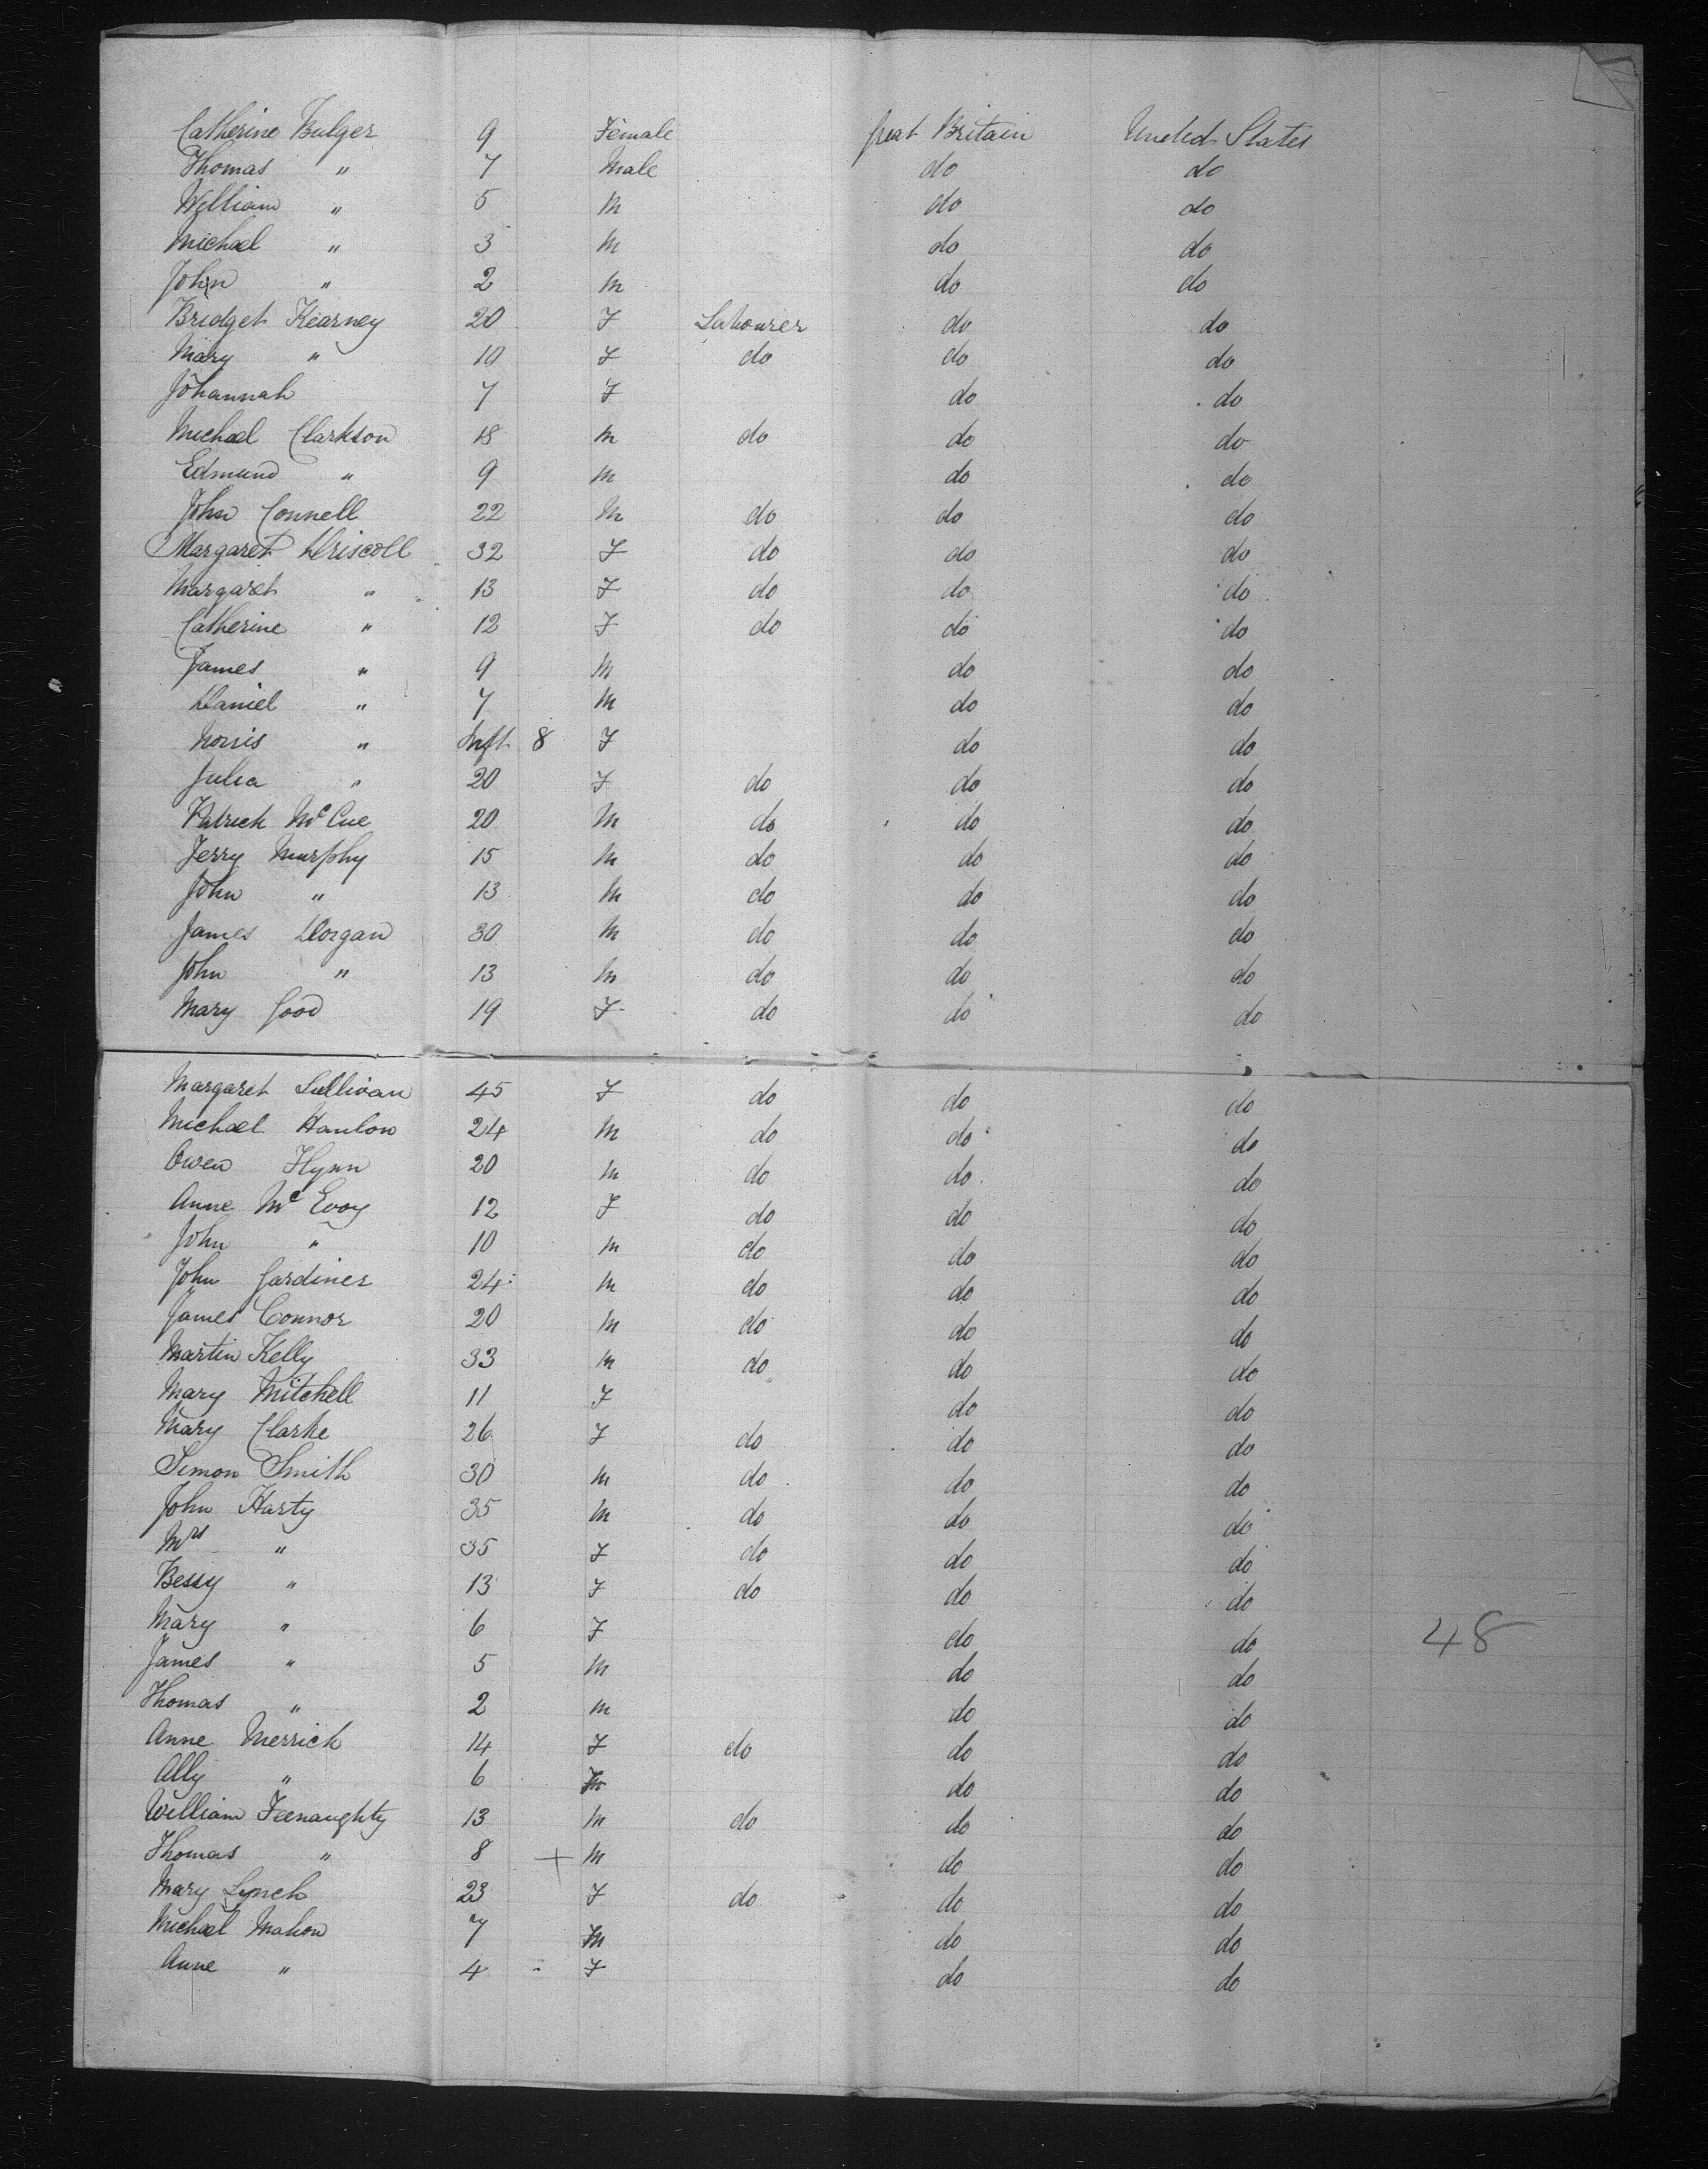 Catherine Bulger 9 Female Great Britain United States
Thomas " 7 Male do do
William " 5 M do do
Michael " 3 M do do
John " 2 M do do
Bridget Kearney 20 F Labourer do do
Mary " 10 F do do do
Johannah 7 F do do
Michael Clarkson 18 M do do do
Edmund " 9 M do do
John Connell 22 M do do do
Margaret Driscoll 32 F do do do
Margaret " 13 F do do do
Catherine " 12 F do do do
James " 9 M do do
Daniel " 7 M do do
Norris " Inft 8 F do do
Julia " 20 F do do do
Patrick McCue 20 M do do do
Jerry Murphy 15 M do do do
John " 13 M do do do
James Dorgan 30 M do do do
John " 13 M do do do
Mary Good 19 F do do do
Margaret Sullivan 45 F do do do
Michael Hanlon 24 M do do do
Owen Flynn 20 M do do do
Anne McEvoy 12 F do do do
John " 10 M do do do
John Gardiner 24 M do do do
James Connor 20 M do do do
Martin Kelly 33 M do do do
Mary Mitchell 11 F do do
Mary Clarke 26 F do do do
Simon Smith 30 M do do do
John Harty 35 M do do do
Mrs " 35 F do do do
Bessy " 13 F do do do
Mary " 6 F do do 48
James " 5 M do do
Thomas " 2 M do do
Anne Merrick 14 F do do do
Ally " 6 do do
William Feenaughty 13 M do do do
Thomas " 8 + M do do
Mary Lynch 23 F do do do
Michael Mahon 7 M do do
Anne " 4 F do do